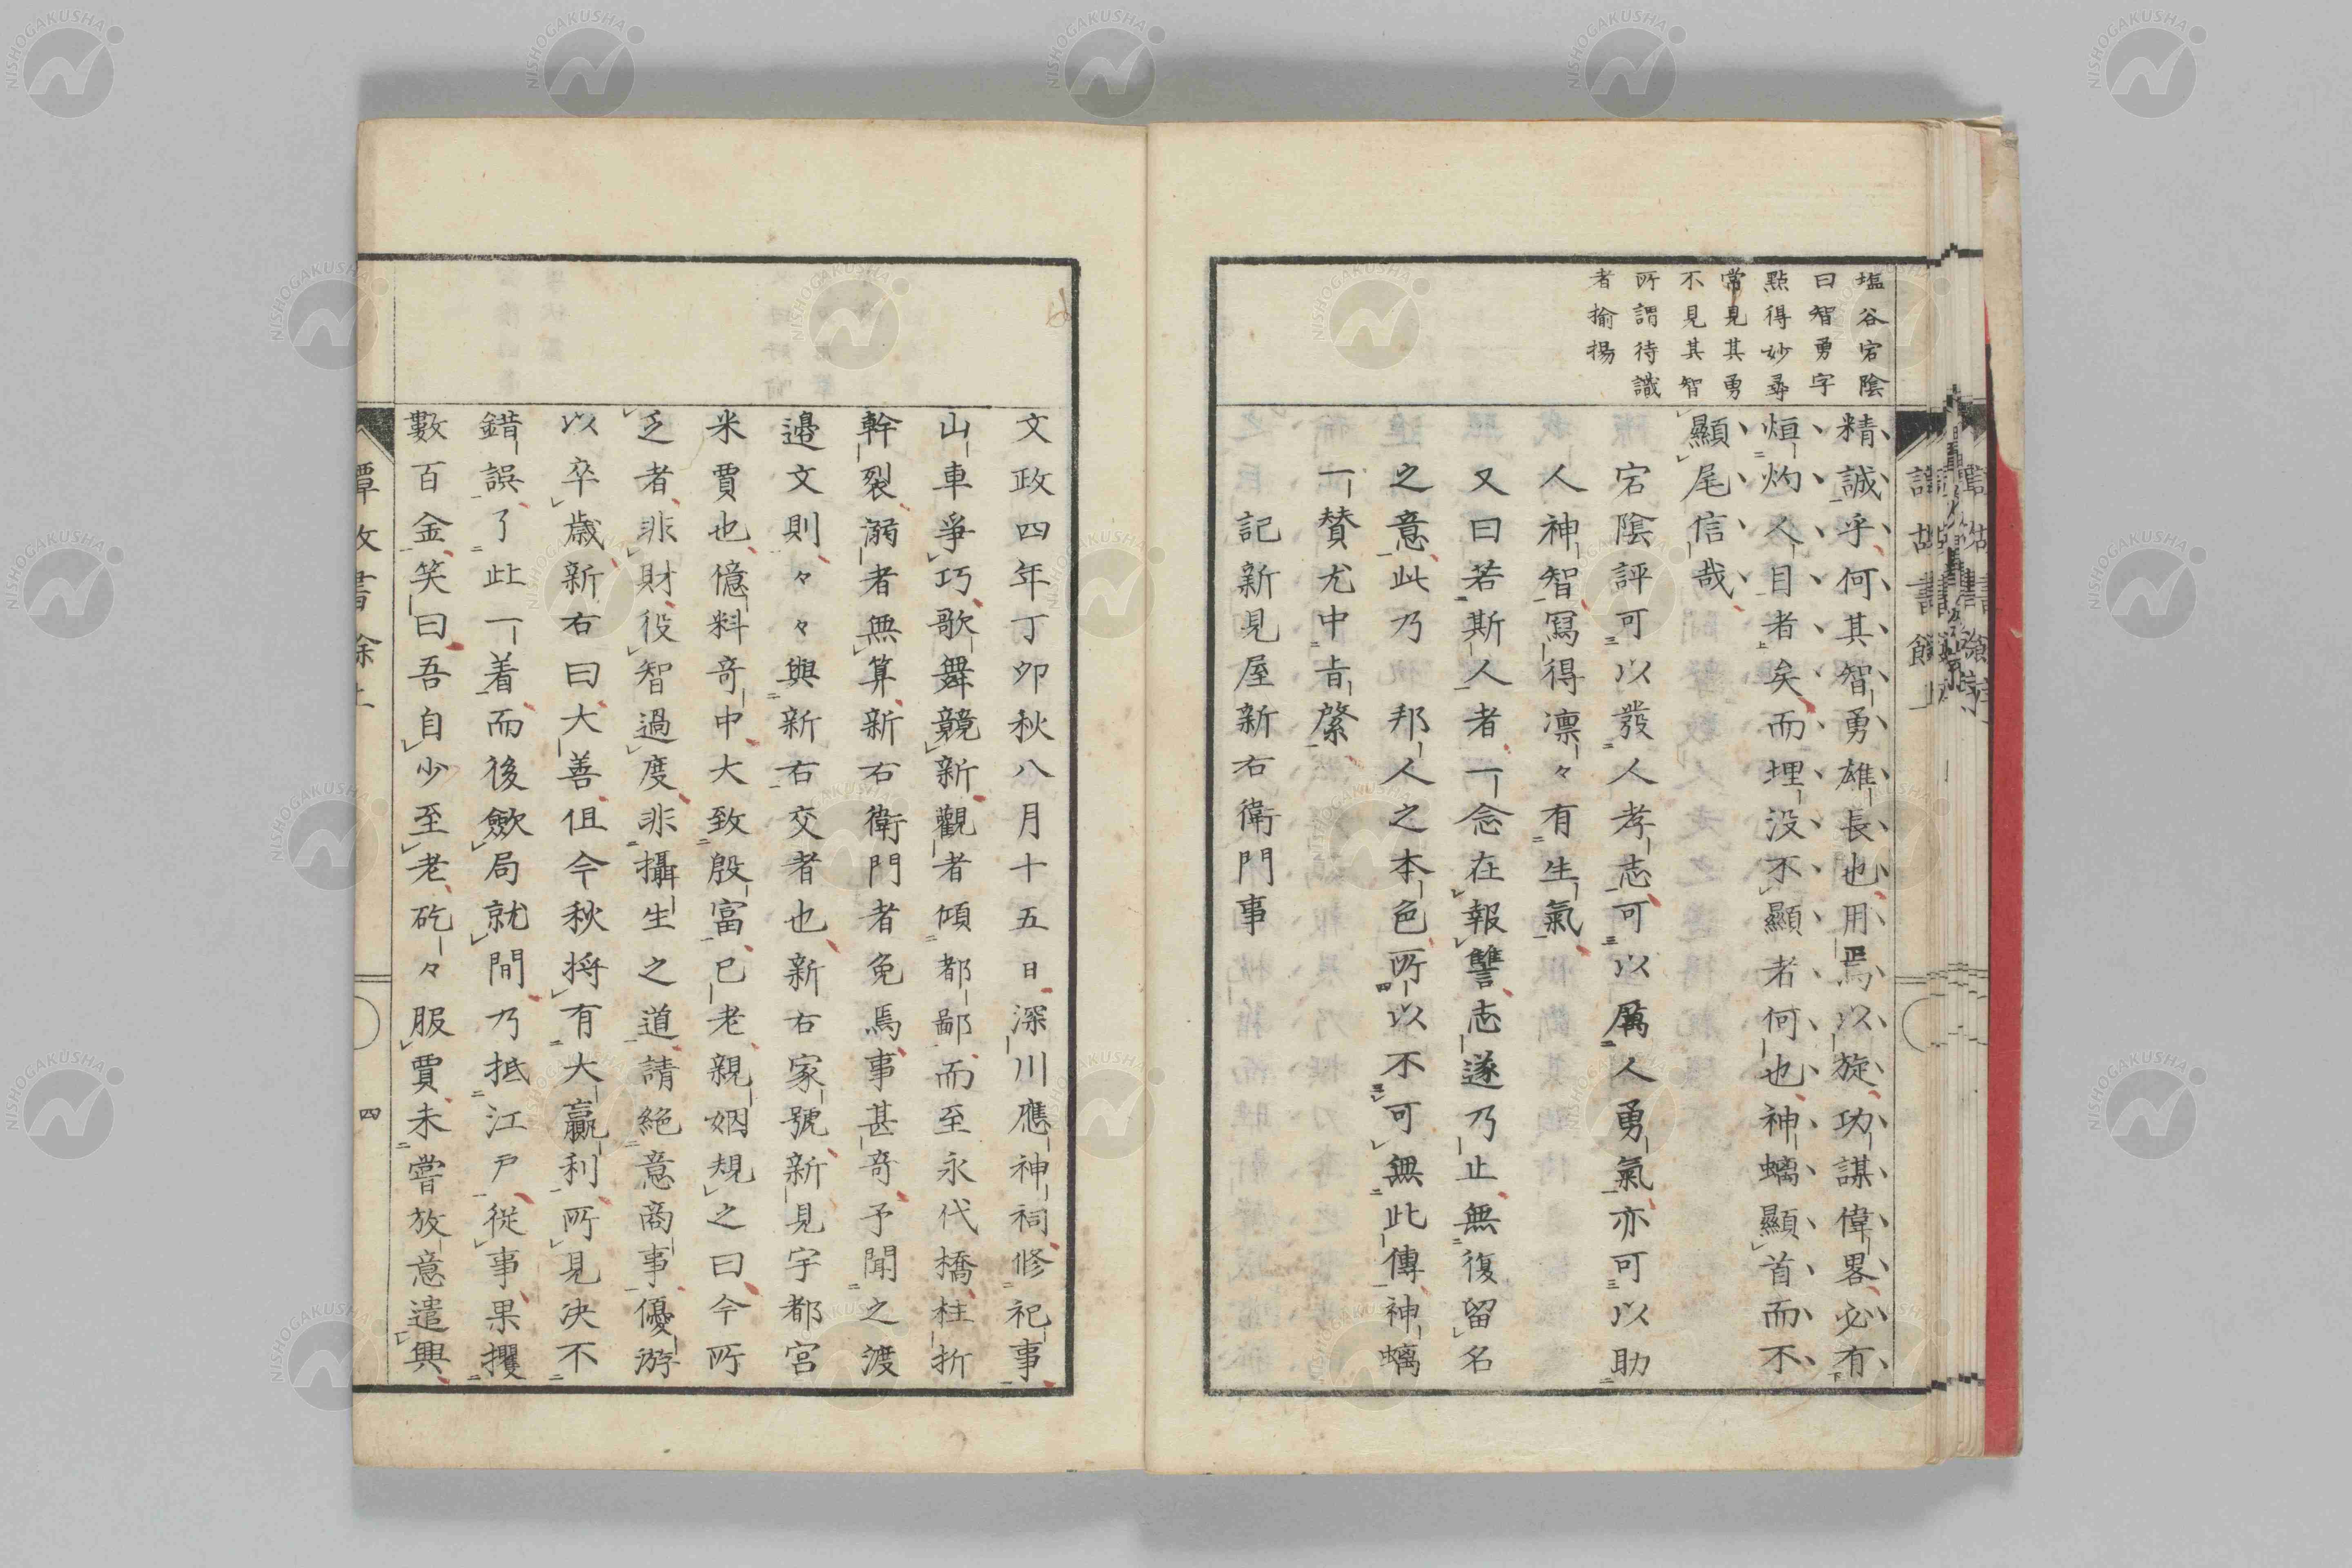 塩谷宕陰
曰智勇字
點得妙尋
常見其勇
不見其智
所謂待識
者揄揚
精誠乎何其智勇雄長也用焉以旋功謀偉畧必有
烜灼人目者矣而埋没不顯者何也神螭顯首而不
顯尾信哉
宕陰評可以發人孝志可以厲人勇氣亦可以助
人神智寫得凛々有生氣
又曰若斯人者一念在報讐志遂乃止無復留名
之意此乃邦人之本色所以不可無此傳神螭
一賛尤中肯綮
記新見屋新右衛門事
文政四年丁卯秋八月十五日深川應神祠修祀事
山車爭巧歌舞競新觀者傾都鄙而至永代橋柱折
幹裂溺者無算新右衛門者免焉事甚竒予聞之渡
邉文則々々與新右交者也新右家號新見宇都宮
米賈也億料竒中大致殷富已老親姻規之曰今所
乏者非財役智過度非攝生之道請絶意商事優游
以卒歳新右曰大善但今秋将有大贏利所見决不
錯誤了此一着而後斂局就間乃抵江戸從事果攫
數百金笑曰吾自少至老矻々服賈未嘗放意遣興
四